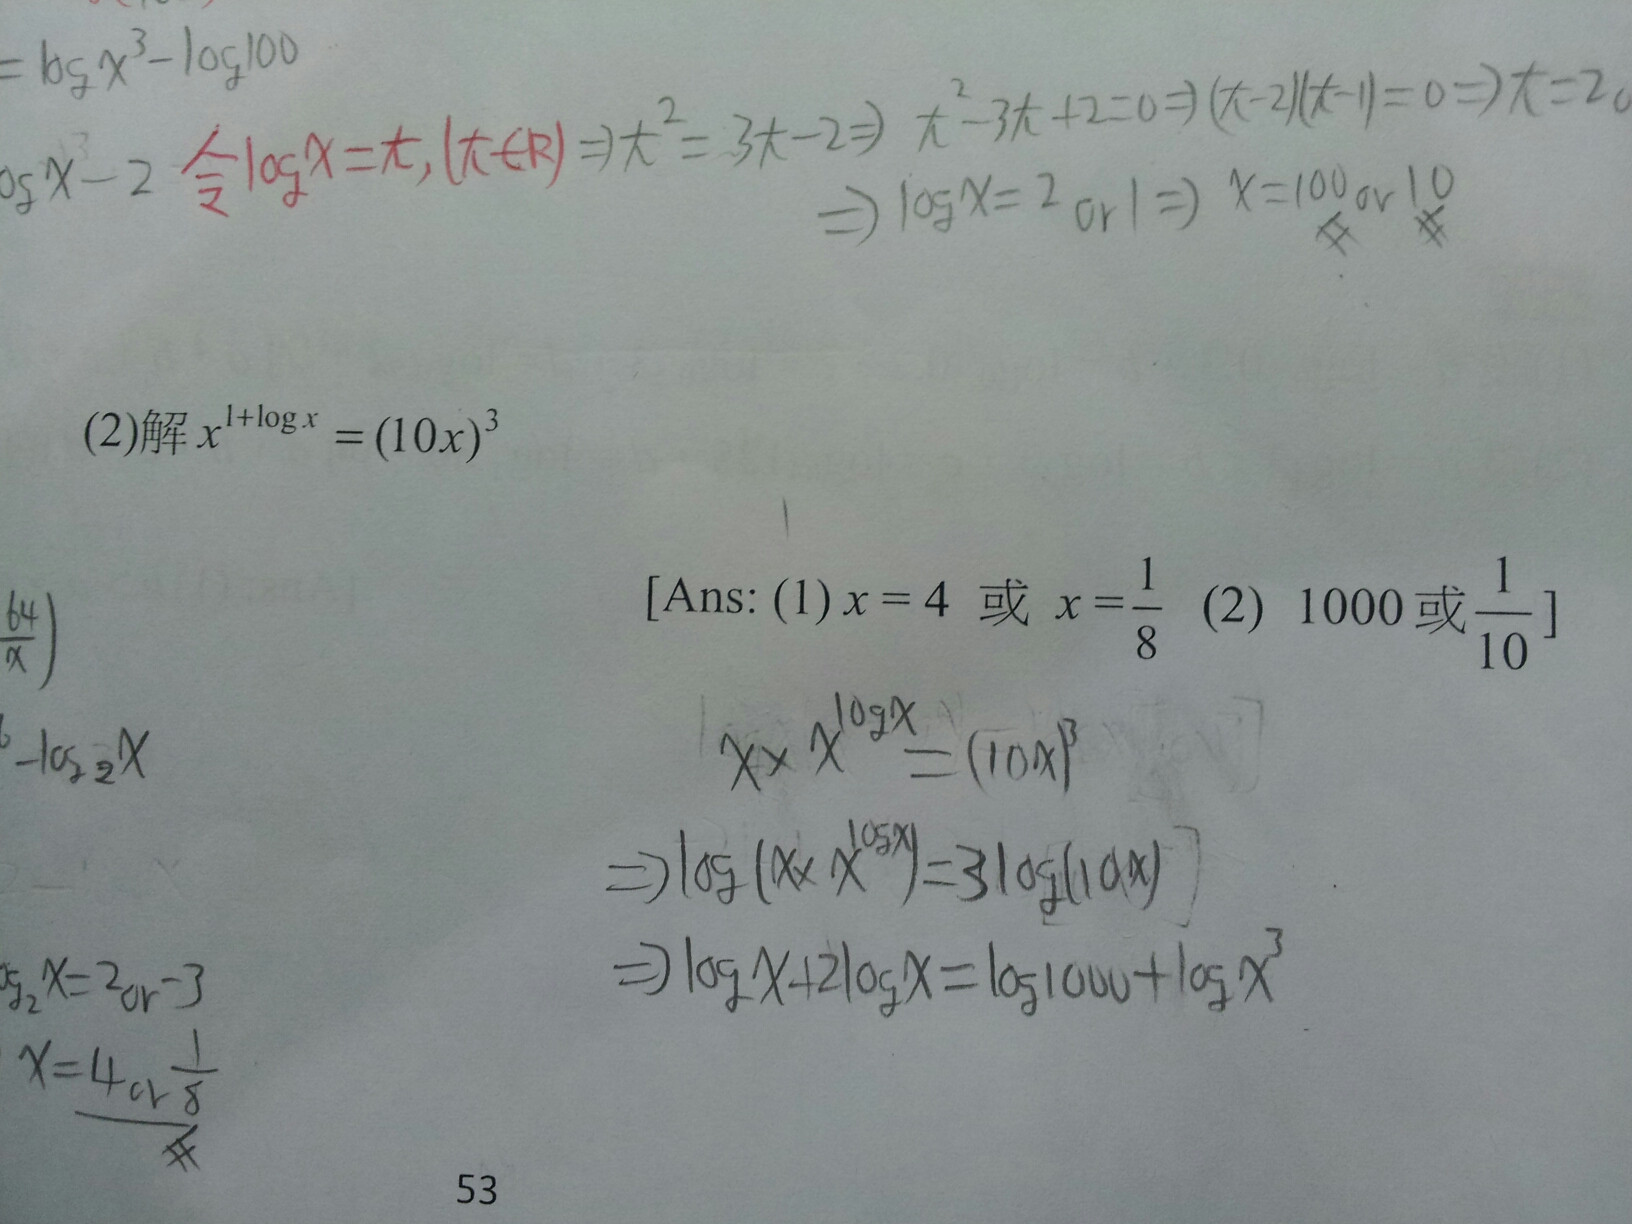 = log x³ - log100
og x - 2 令 log x = t, (t∈R) ⇒ t² = 3t - 2 ⇒ t² - 3t + 2 = 0 ⇒ (t-2)(t-1) = 0 ⇒ t = 2
⇒ log x = 2 or 1 ⇒ x = 100 or 10
(2)解 x^{1+log x} = (10x)³
[Ans: (1) x = 4 或 x = 1/8 (2) 1000 或 1/10 ]
64/x)
- log₂x
x × x^{log x} = (10x)³
⇒ log (x × x^{log x}) = 3 log(10x)
⇒ log x + 2 log x = log 1000 + log x³
og₂x = 2 or -3
x = 4 or 1/8
53